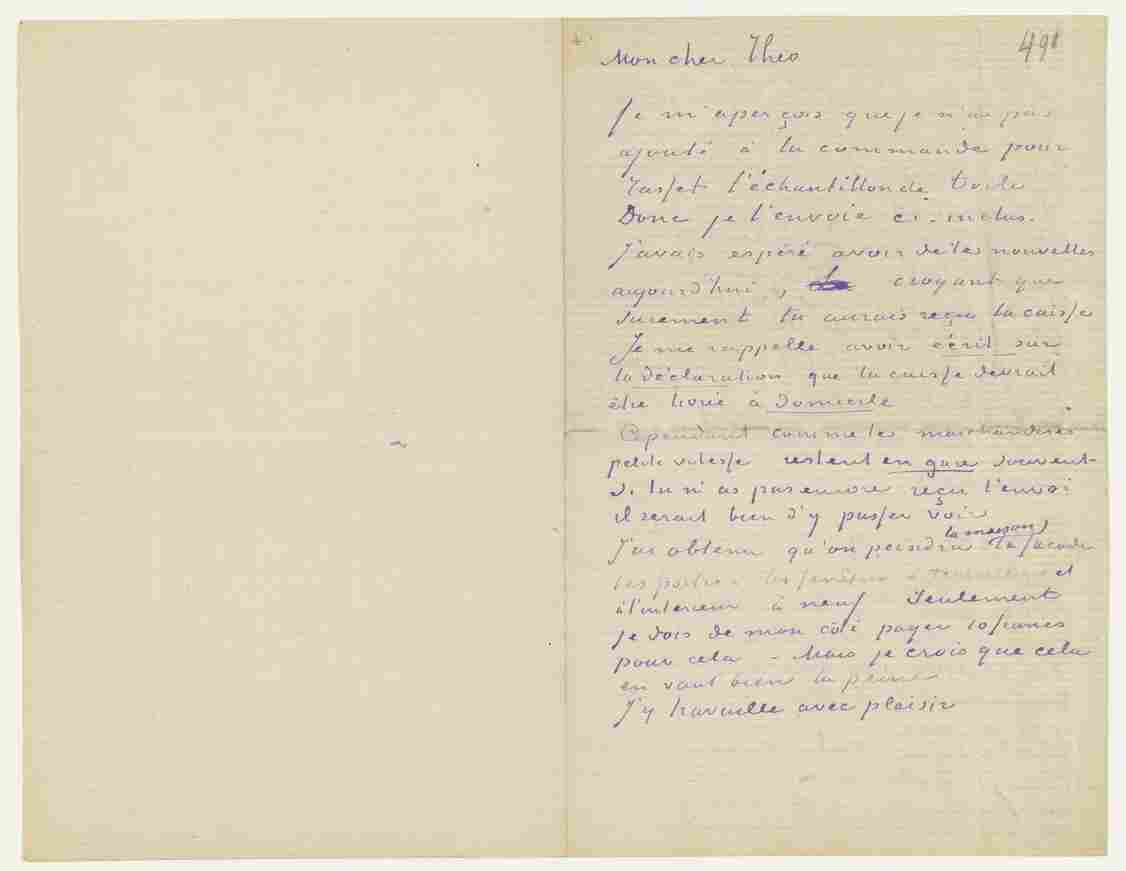 491
Mon cher Theo
Je m'aperçois que je n'ai pas
ajouté à la commande pour
Tasset l'échantillon de toile
Donc je l'envoie ci-inclus.
J'avais espéré avoir de tes nouvelles
aujourd'hui, croyant que
surement tu aurais reçu la caisse
Je me rappelle avoir écrit sur
la déclaration que la caisse devrait
être livrée à domicile
Cependant comme les marchandises
petite vitesse restent en gare souvent-
si tu n'as pas encore reçu l'envoi
il serait bien d'y passer voir
la maison,
J'ai obtenu qu'on peindra la façade
les portes & les fenêtres à et
à l'interieur à neuf Seulement
je dois de mon côté payer 10 francs
pour cela – Mais je crois que cela
en vaut bien la peine
J'y travaille avec plaisir